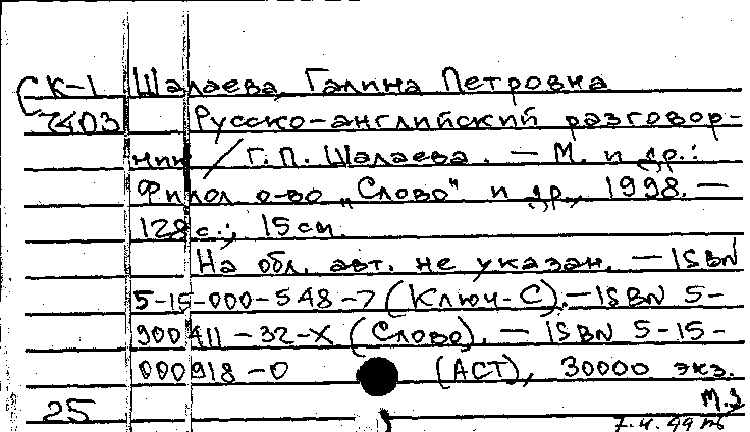 СК-1 Шалаева, Галина Петровна
7403 Русско-английский разговор-
ник / Г.П. Шалаева. — М. и др.:
Филол. о-во „Слово" и др., 1998. —
128 с.; 15 см.
На обл. авт. не указан. — ISBN
5-15-000-548-7 (Ключ-С). — ISBN 5-
900411-32-X (Слово). — ISBN 5-15-
000918-0 (АСТ), 30000 экз.
25